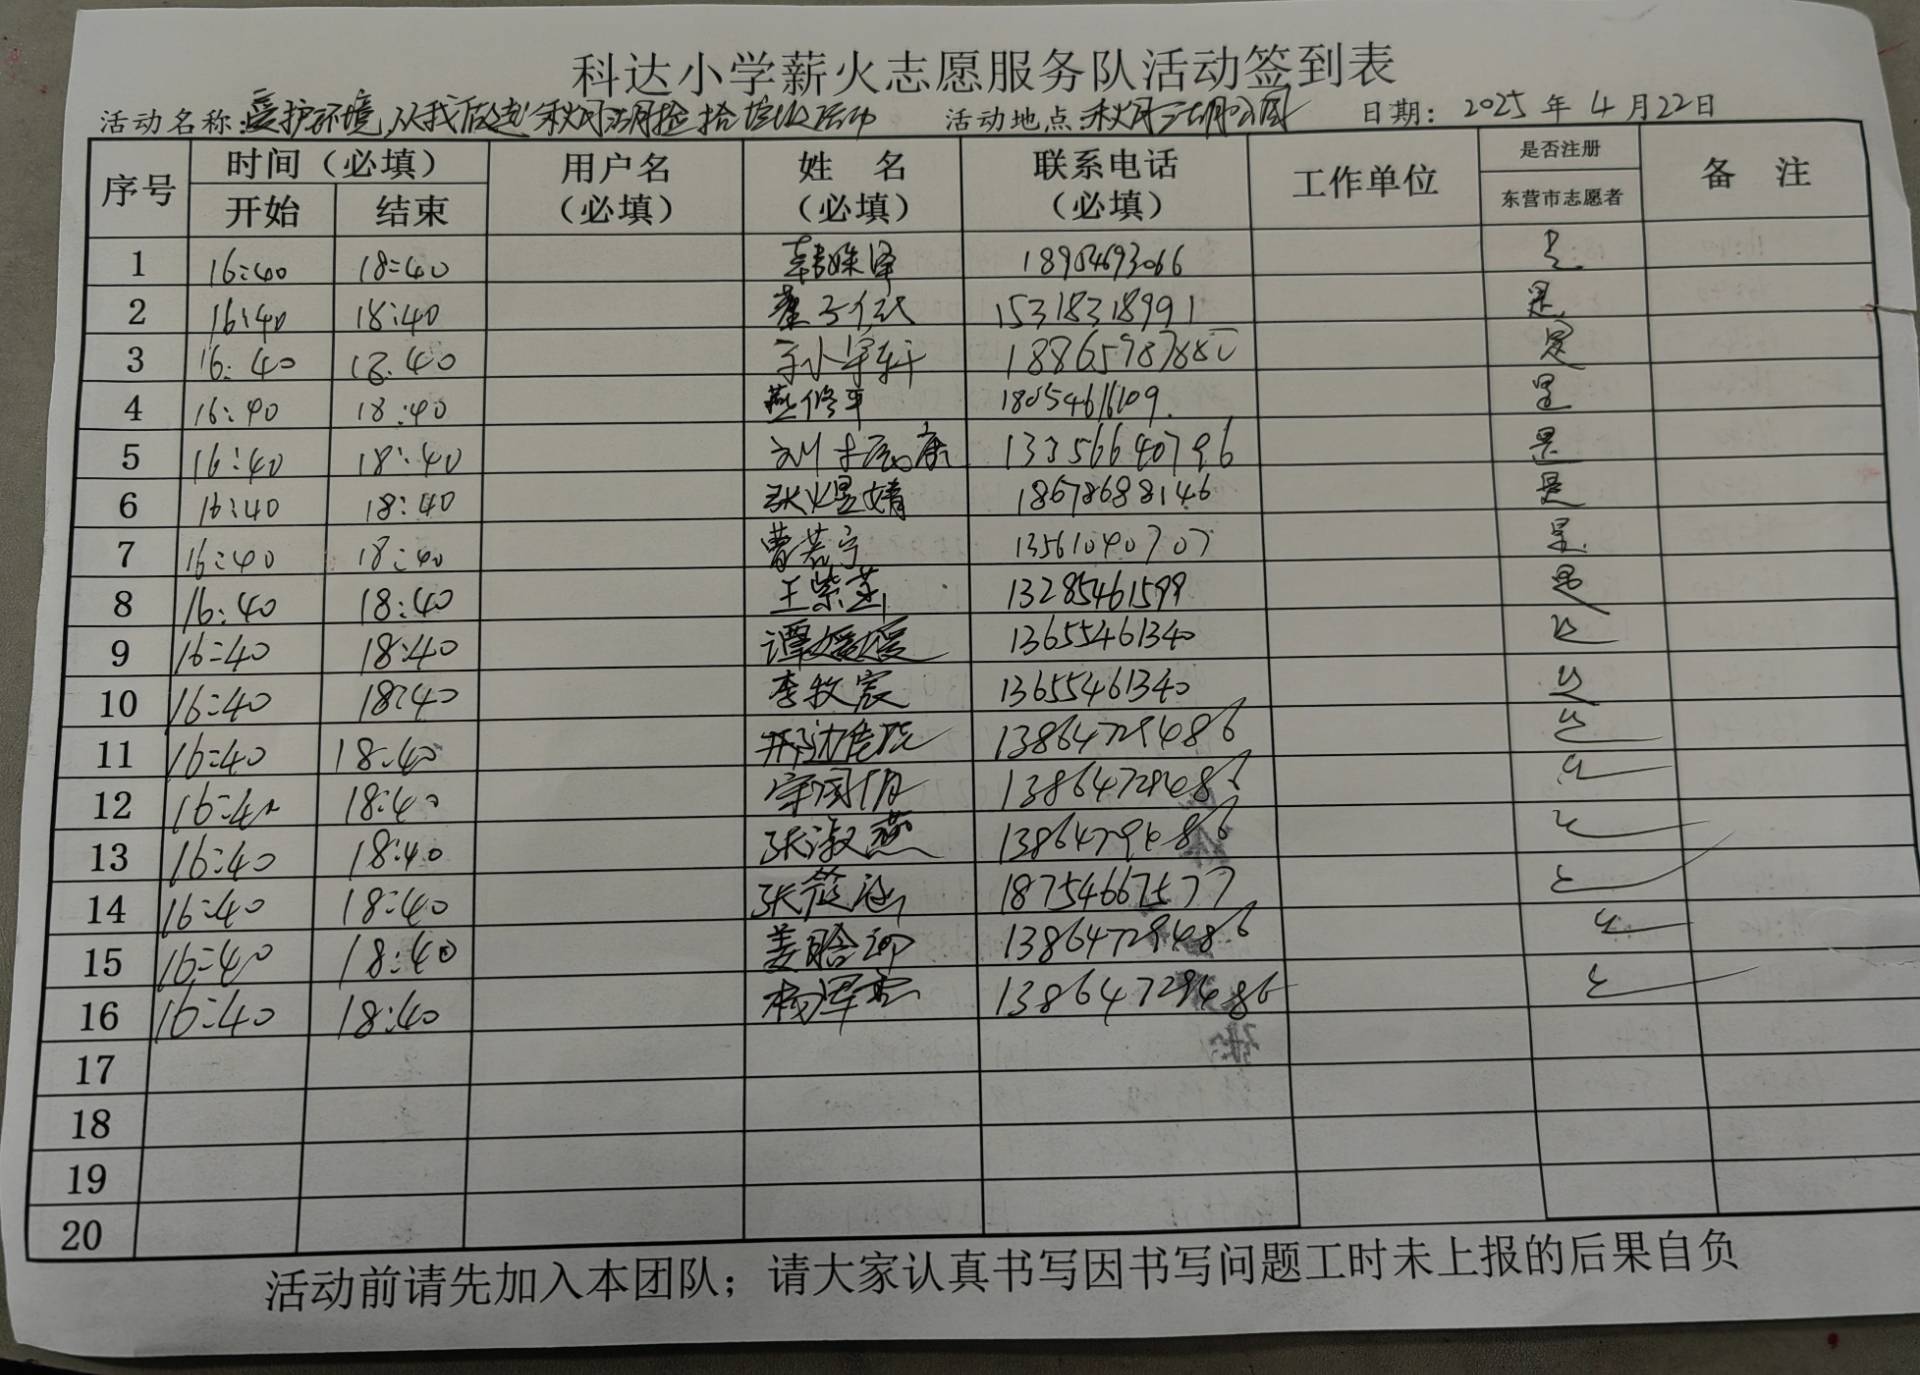 科达小学薪火志愿服务队活动签到表
活动名称:爱护环境,从我做起 秋月湖捡拾垃圾活动 活动地点:秋月湖公园 日期: 2025 年 4 月 22 日
序号 时间(必填) 用户名 姓 名 联系电话 工作单位 是否注册 备 注
开始 结束 (必填) (必填) (必填) 东营市志愿者
1 16:40 18:40 18954693066 是
2 16:40 18:40 15318318991 是
3 16:40 18:40 18865987880 是
4 16:40 18:40 燕修平 18054616109 是
5 16:40 18:40 13356640796 是
6 16:40 18:40 张煜婧 18678688146 是
7 16:40 18:40 曹若宁 13561040707 是
8 16:40 18:40 王紫 13285461599 是
9 16:40 18:40 谭媛媛 13655461340 是
10 16:40 18:40 李牧宸 13655461340 是
11 16:40 18:40 13864729486 是
12 16:40 18:40 13864729486 是
13 16:40 18:40 张淑燕 13864729486 是
14 16:40 18:40 张筱涵 18754667577 是
15 16:40 18:40 姜晗 13864729486 是
16 16:40 18:40 13864729486 是
17
18
19
20
活动前请先加入本团队；请大家认真书写因书写问题工时未上报的后果自负